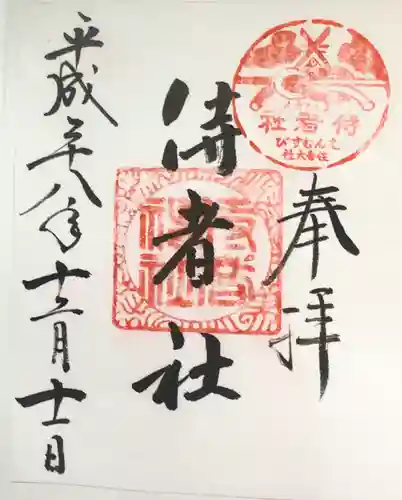 奉拝
侍者社
平成二十八年十二月十一日
侍者社
えんむすび
住吉大社